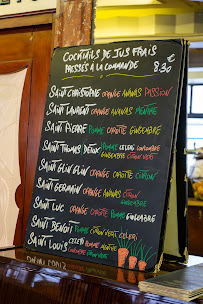 COCKTAILS DE JUS FRAIS
PRESSÉS À LA COMMANDE
8.30 €
SAINT CHRISTOPHE ORANGE ANANAS PASSION
SAINT LAURENT ORANGE ANANAS MENTHE
SAINT PIERRE POMME CAROTTE GINGEMBRE
SAINT THOMAS DEUX POMME CELERI CONCOMBRE
GINGEMBRE CITRON VERT
SAINT GLIN GLIN ORANGE CAROTTE CITRON
SAINT GERMAIN ORANGE ANANAS CITRON
SAINT LUC ORANGE CAROTTE POMME GINGEMBRE
SAINT BENOIT POMME CITRON VERT CELERI
SAINT LOUIS CELERI TOMATE